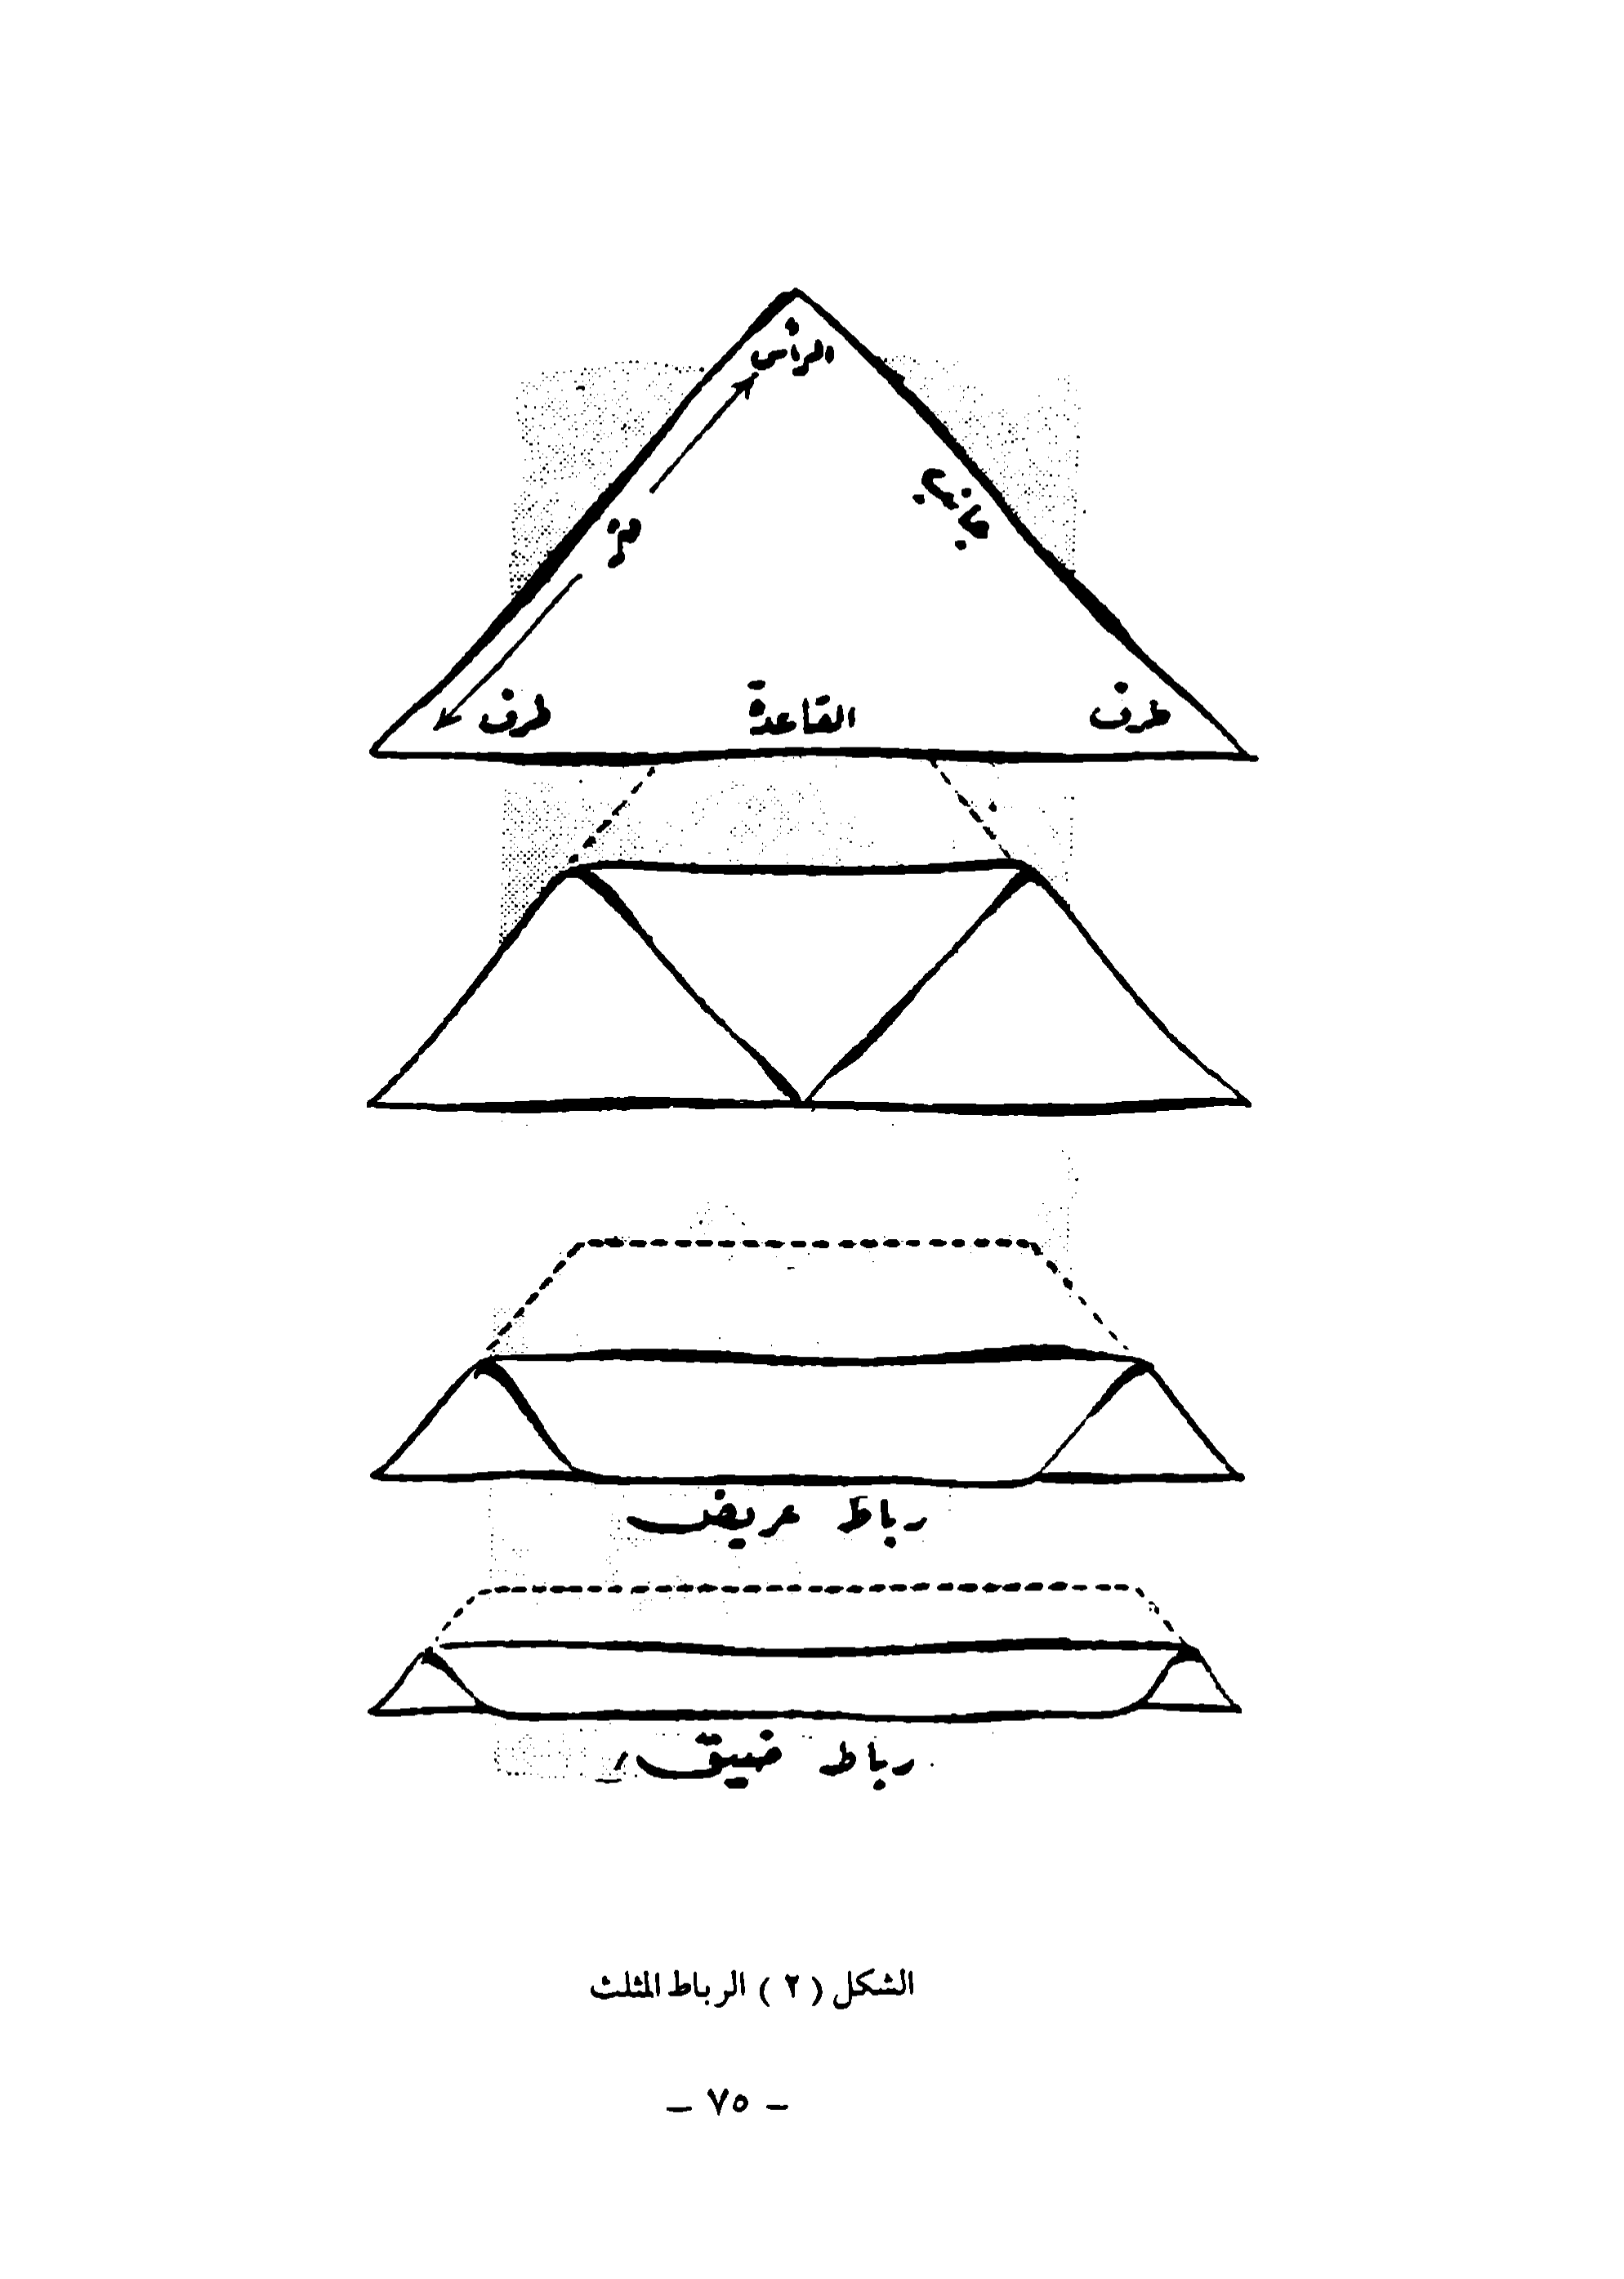 الرأس
جانب
متر
طرف القاعدة طرف
رباط عريض
رباط ضيق
الشكل ( ٢ ) الرباط المثلث
– ٧٥ –